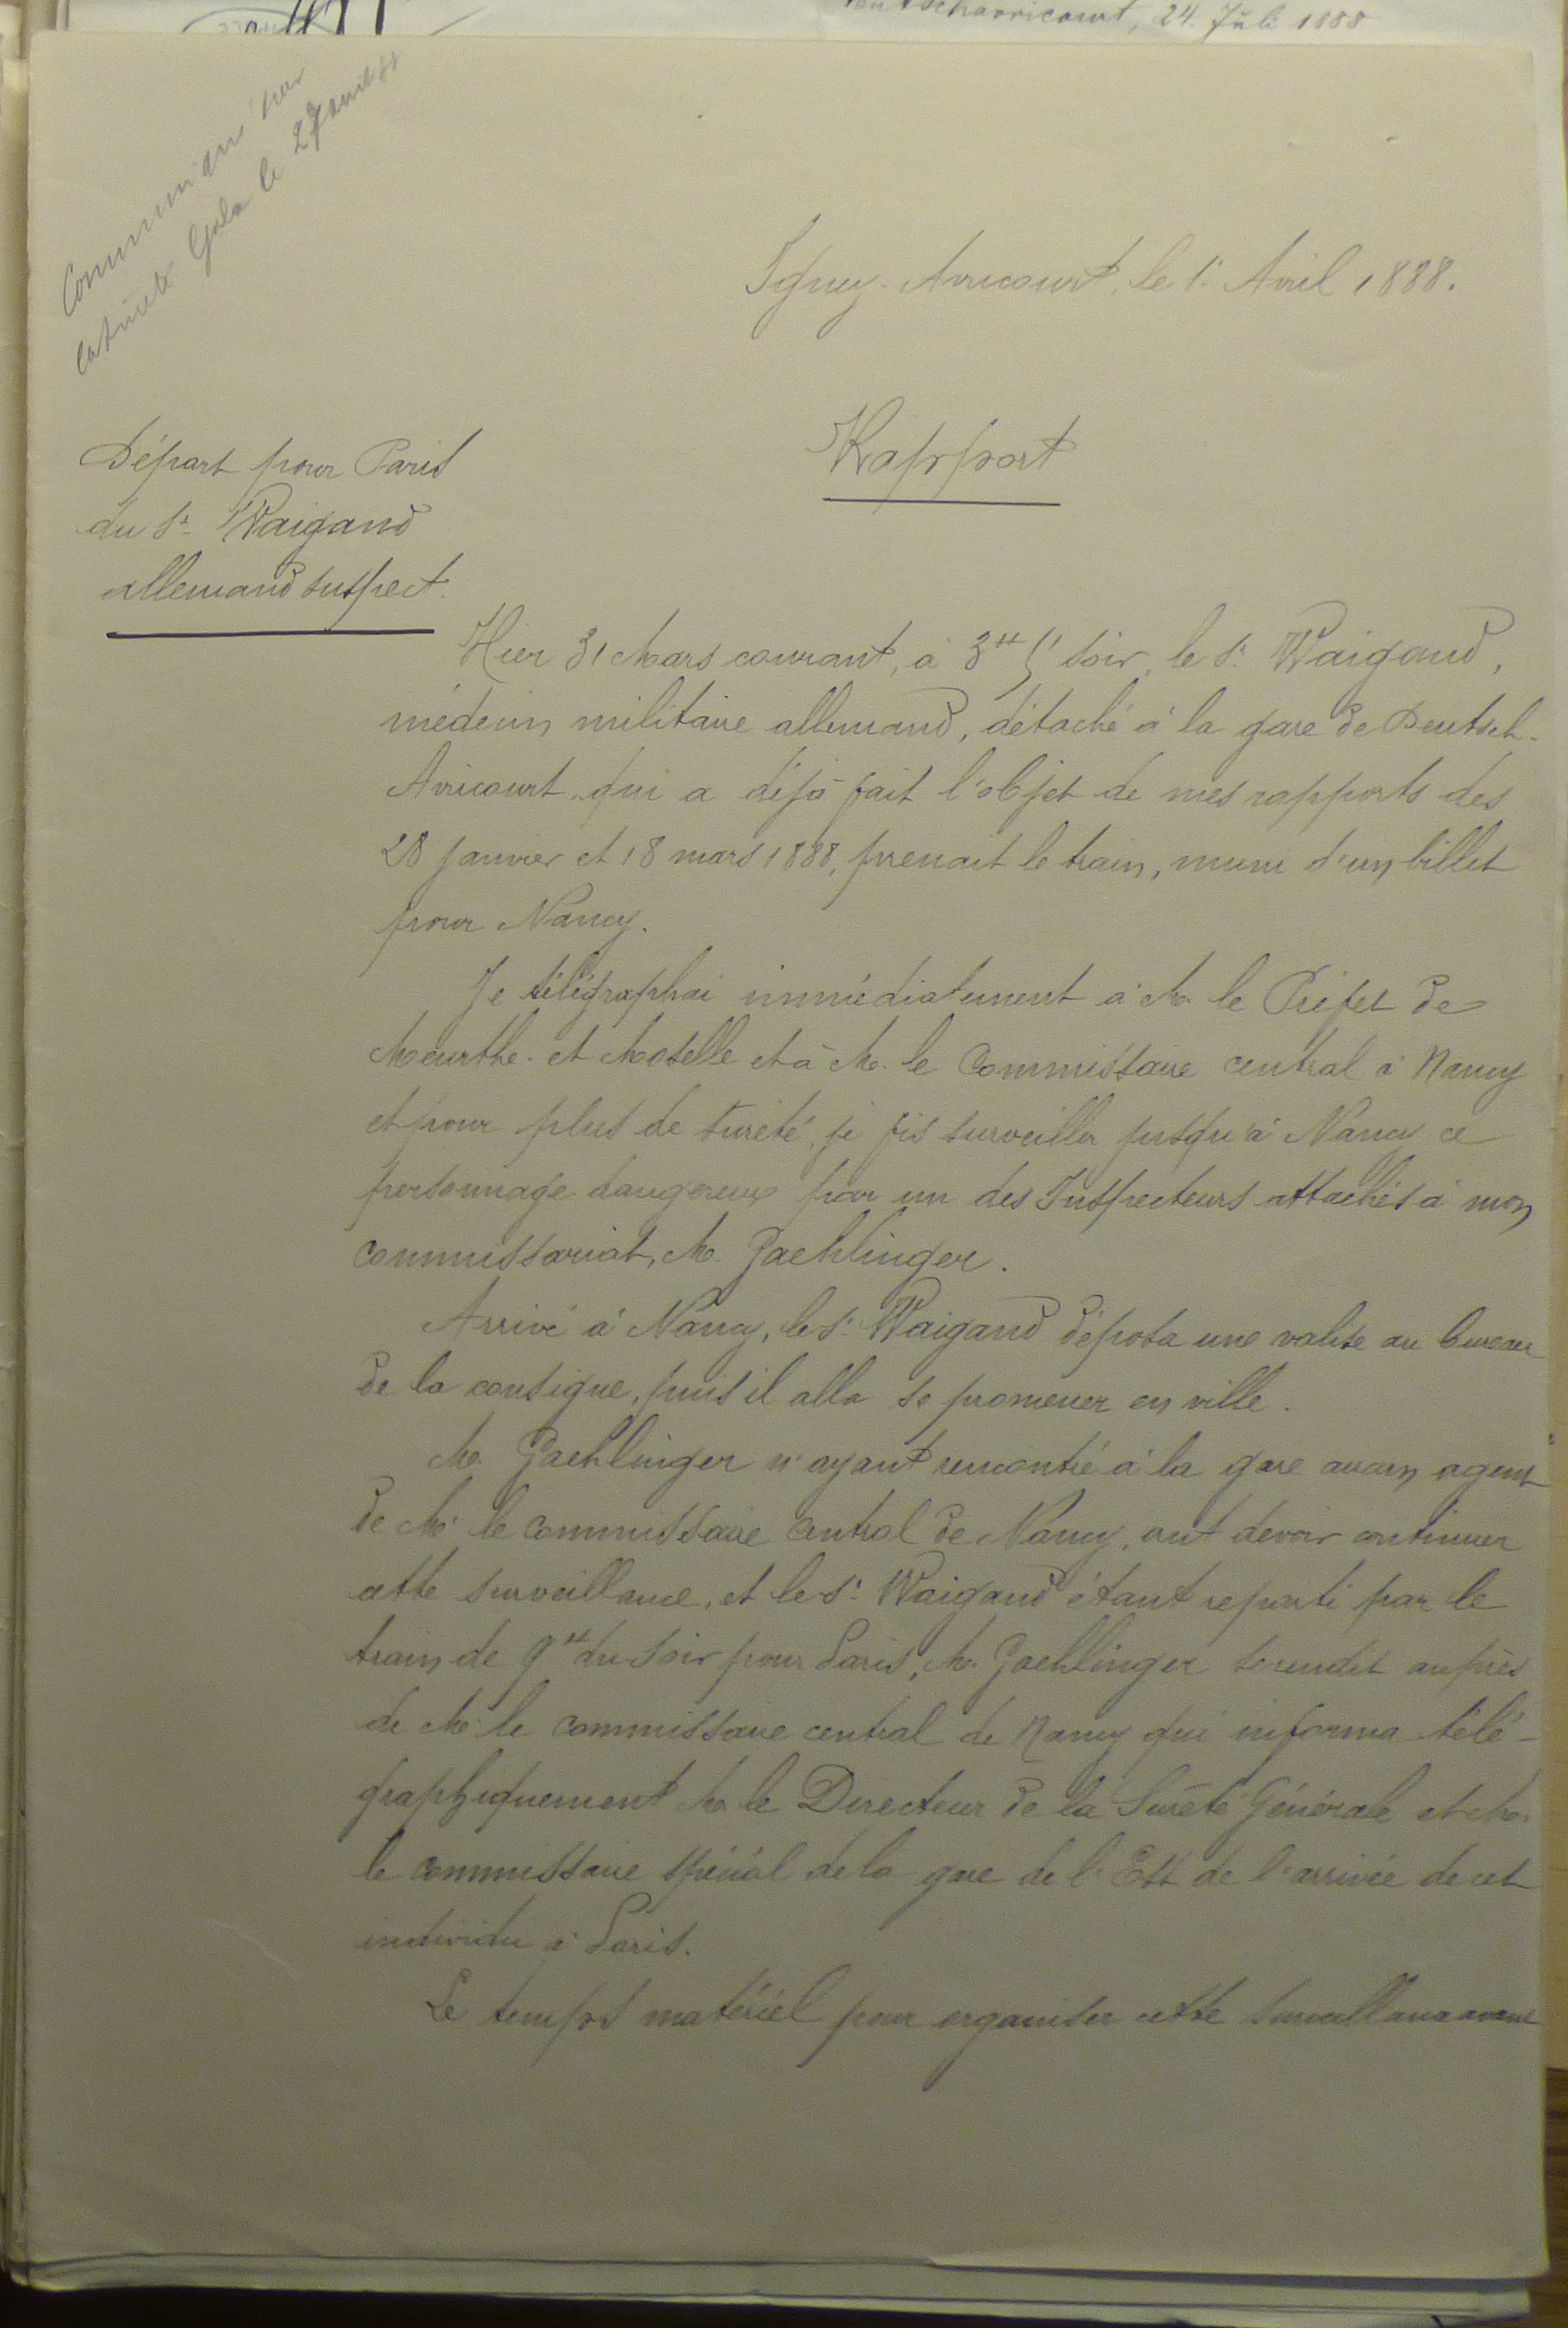 Deutschavricourt, 24. Juli 1888
le 27 avril 88
Igney-Avricourt, le 1er Avril 1888.
Rapport
Départ pour Paris
du Sr. Waigand
allemand suspect.
Hier 31 Mars courant, à 3H 5' soir, le Sr. Waigand,
médecin militaire allemand, détaché à la gare de Deutsch-
Avricourt qui a déjà fait l'objet de mes rapports des
28 janvier et 18 mars 1888, prenait le train, muni d'un billet
pour Nancy.
Je télégraphai immédiatement à M. le Préfet de
Meurthe-et-Moselle et à M. le Commissaire central à Nancy
et pour plus de sûreté, je fis surveiller jusqu'à Nancy ce
personnage dangereux par un des Inspecteurs attachés à mon
commissariat, M. Gaehlinger.
Arrivé à Nancy, le Sr. Waigand déposa une valise au bureau
de la consigne, puis il alla se promener en ville.
M. Gaehlinger n'ayant rencontré à la gare aucun agent
de M. le commissaire central de Nancy, crut devoir continuer
cette surveillance, et le Sr. Waigand étant reparti par le
train de 9H du soir pour Paris, M. Gaehlinger se rendit auprès
de M. le commissaire central de Nancy qui informa télé-
graphiquement M. le Directeur de la Sûreté Générale et M.
le commissaire spécial de la gare de l'Est de l'arrivée de cet
individu à Paris.
Le temps matériel pour organiser cette surveillance